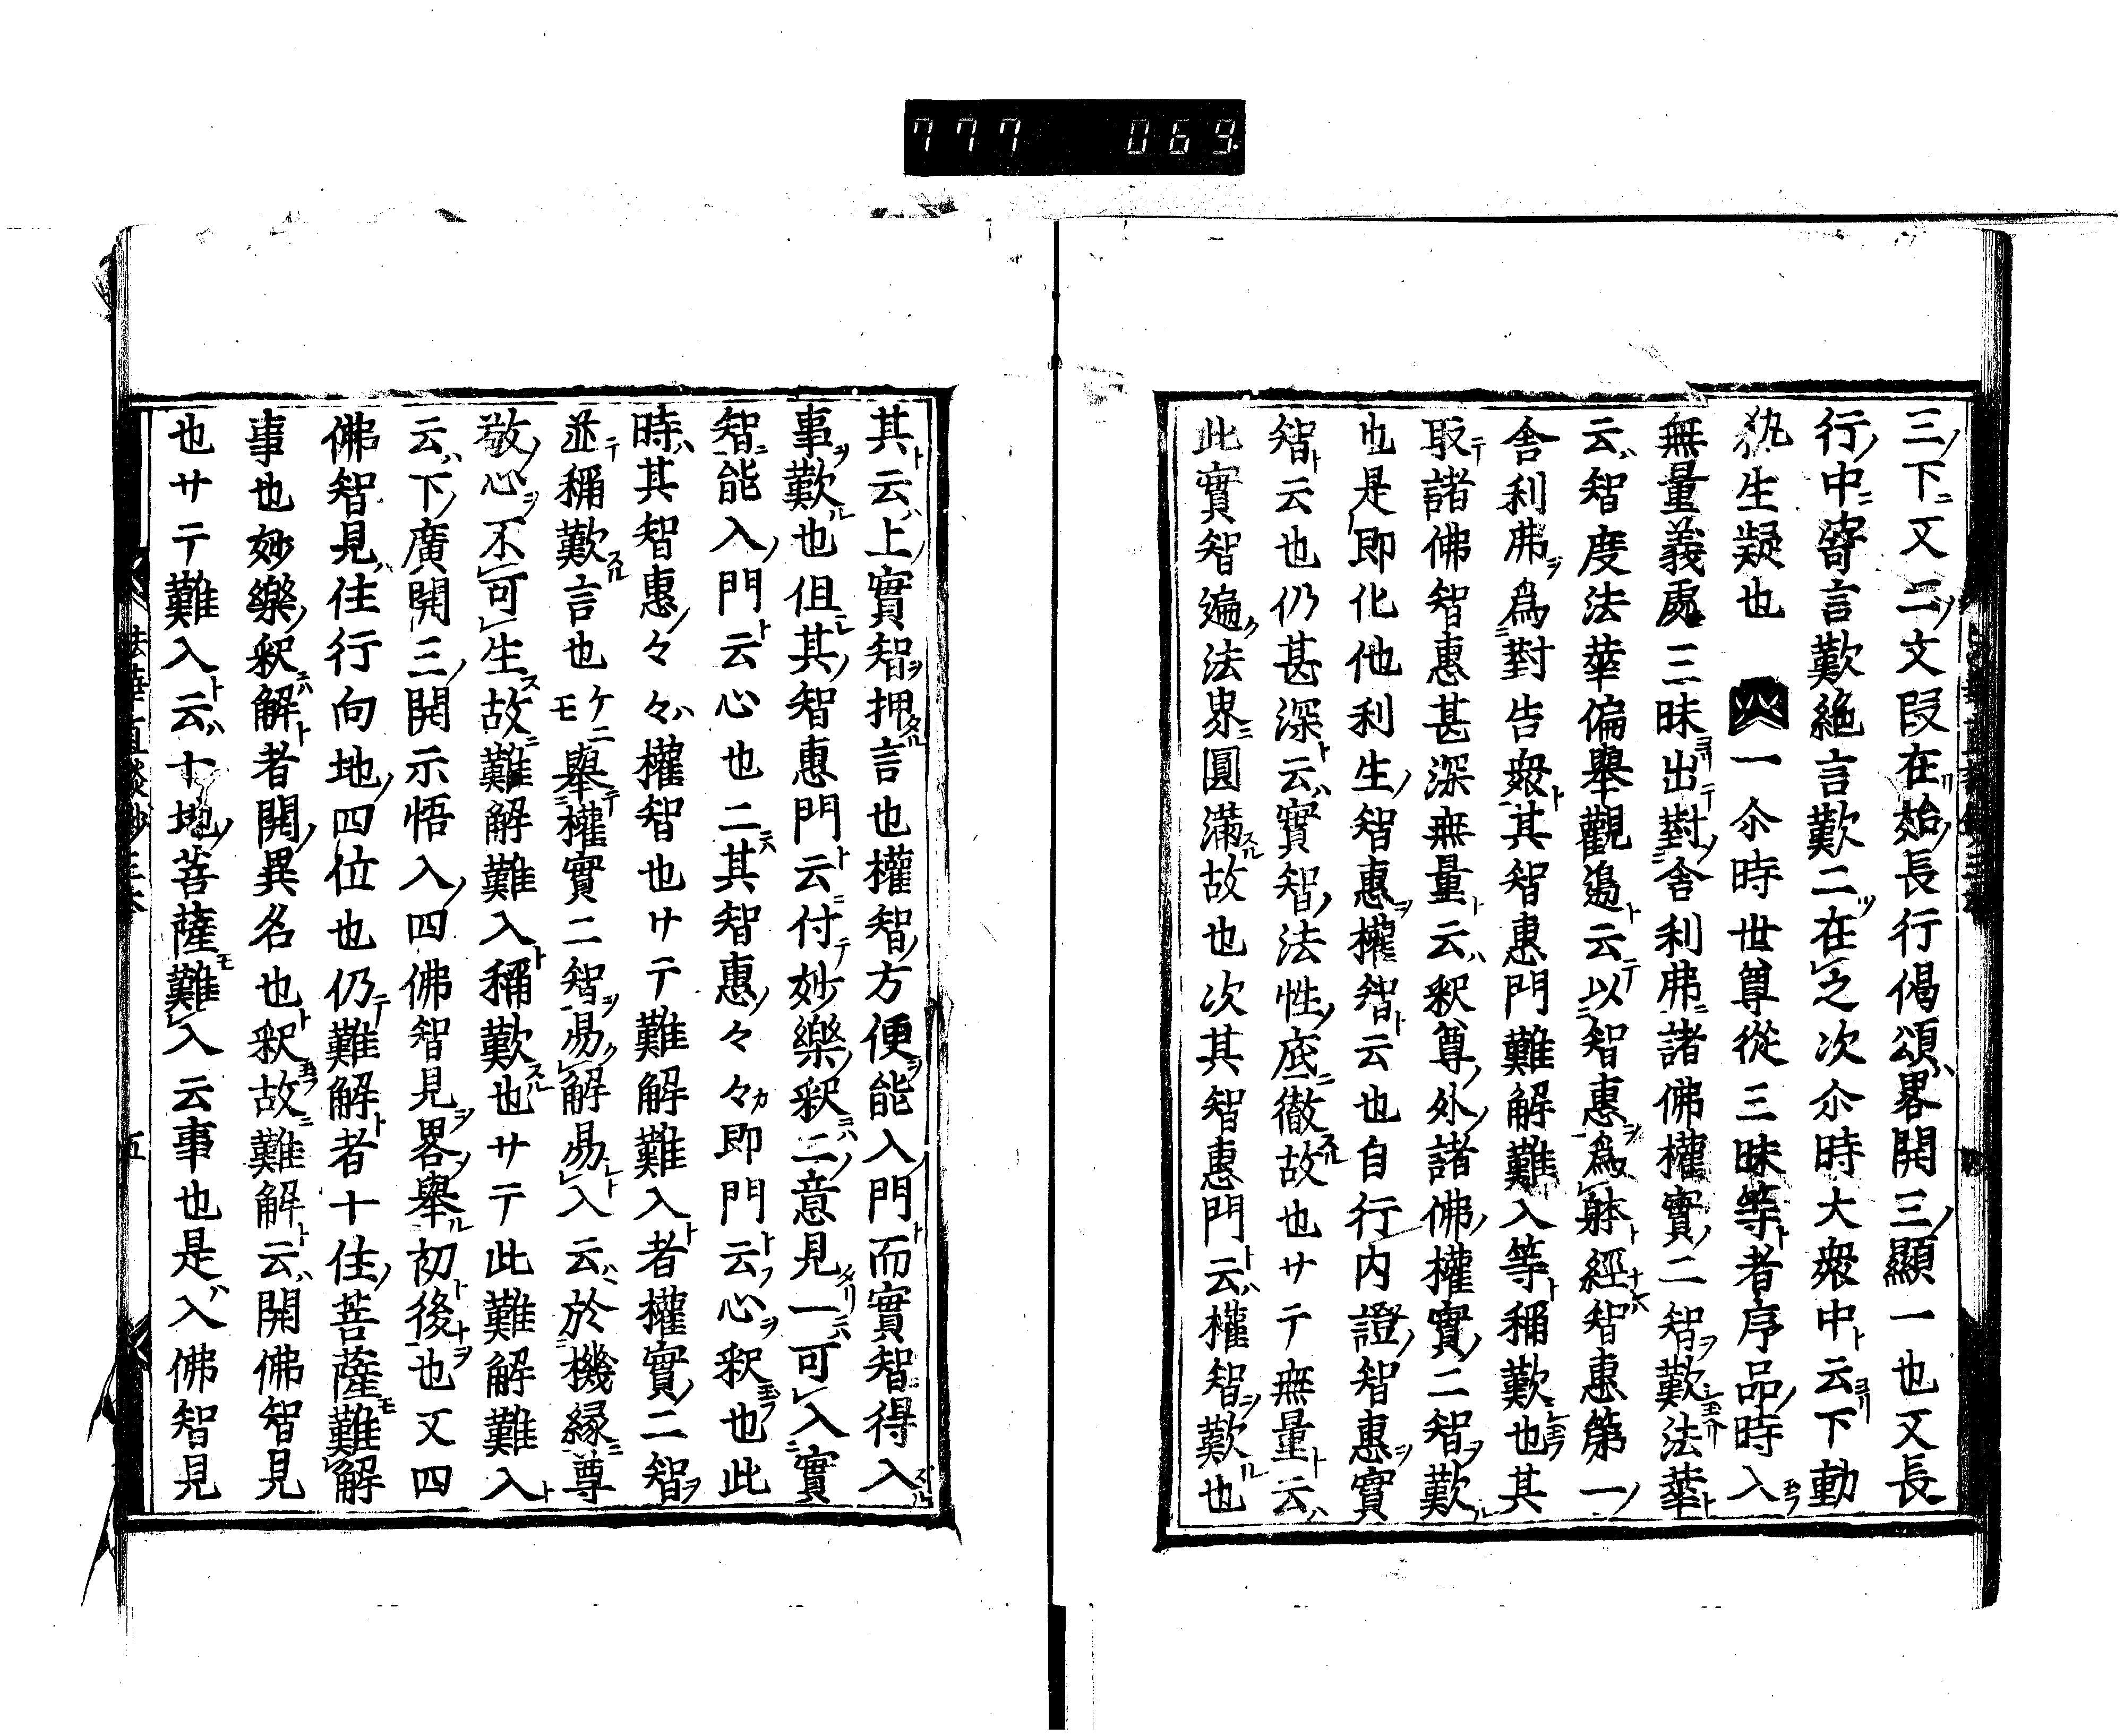 777 069
三ノ下ニ又二ツノ文段在リ始ノ長行偈頌ハ畧開三ノ顯一也又長
行ノ中ニ寄言歎絶言歎二ツ在之次尒時大衆中ト云ヨリ下動
執生疑也 一尒時世尊從三昧等ト者序品ノ時入玉フ
無量義處三昧ヨリ出テ對ノ舍利弗ニ諸佛權實ノ二智ヲ歎シ玉フ法華ト
云ハ智度法華偏擧觀過ト云テ以智惠ヲ爲躰ト經ナレハ智惠第一ノ
舍利弗ヲ爲對告衆ト其智惠門難解難入等ト稱歎シ玉フ也其
取テ諸佛智惠甚深無量ト云ハ釈尊ノ外ノ諸佛ノ權實ノ二智ヲ歎ル
也是即化他利生ノ智惠ヲ權智ト云也自行内證ノ智惠ヲ實
智ト云也仍甚深ト云ハ實智ノ法性ノ底ニ徹スル故也サテ無量ト云ハ
此實智遍ク法界ニ圓滿スル故也次其智惠門ト云ハ權智ヲ歎ル也
其ト云ハ上ノ實智ヲ押タル言也權智ノ方便ヲ能入ノ門ト而實智得入スル
事ヲ歎ル也但其ノ智惠門ト云ニ付テ妙樂ノ釈ニハ二ノ意見タリ一ニハ可入實
智ニ能入ノ門ト云心也二ニハ其智惠ノ々々カ即門ト云フ心ヲ釈玉フ也此
時ハ其智惠ノ々々ハ權智也サテ難解難入ト者權實ノ二智ヲ
並テ稱歎スル言也ケニモ擧テ權實二智ヲ易ク解易レト入云ハ於機縁ニ尊
敬ノ心ヲ不可生ス故ニ難解難入ト稱歎スル也サテ此難解難入ト
云ハ下ノ廣開三ノ開示悟入ノ四佛智見ヲ畧ヲ擧ル初ト後トヲ也又四
佛智見ハ住行向地ノ四位也仍テ難解ト者十住ノ菩薩モ難解
事也妙樂ノ釈ニハ解ト者開ノ異名也ト釈玉フ故ニ難解ト云ハ開佛智見
也サテ難入ト云ハ十地ノ菩薩モ難入云事也是ハ入佛智見